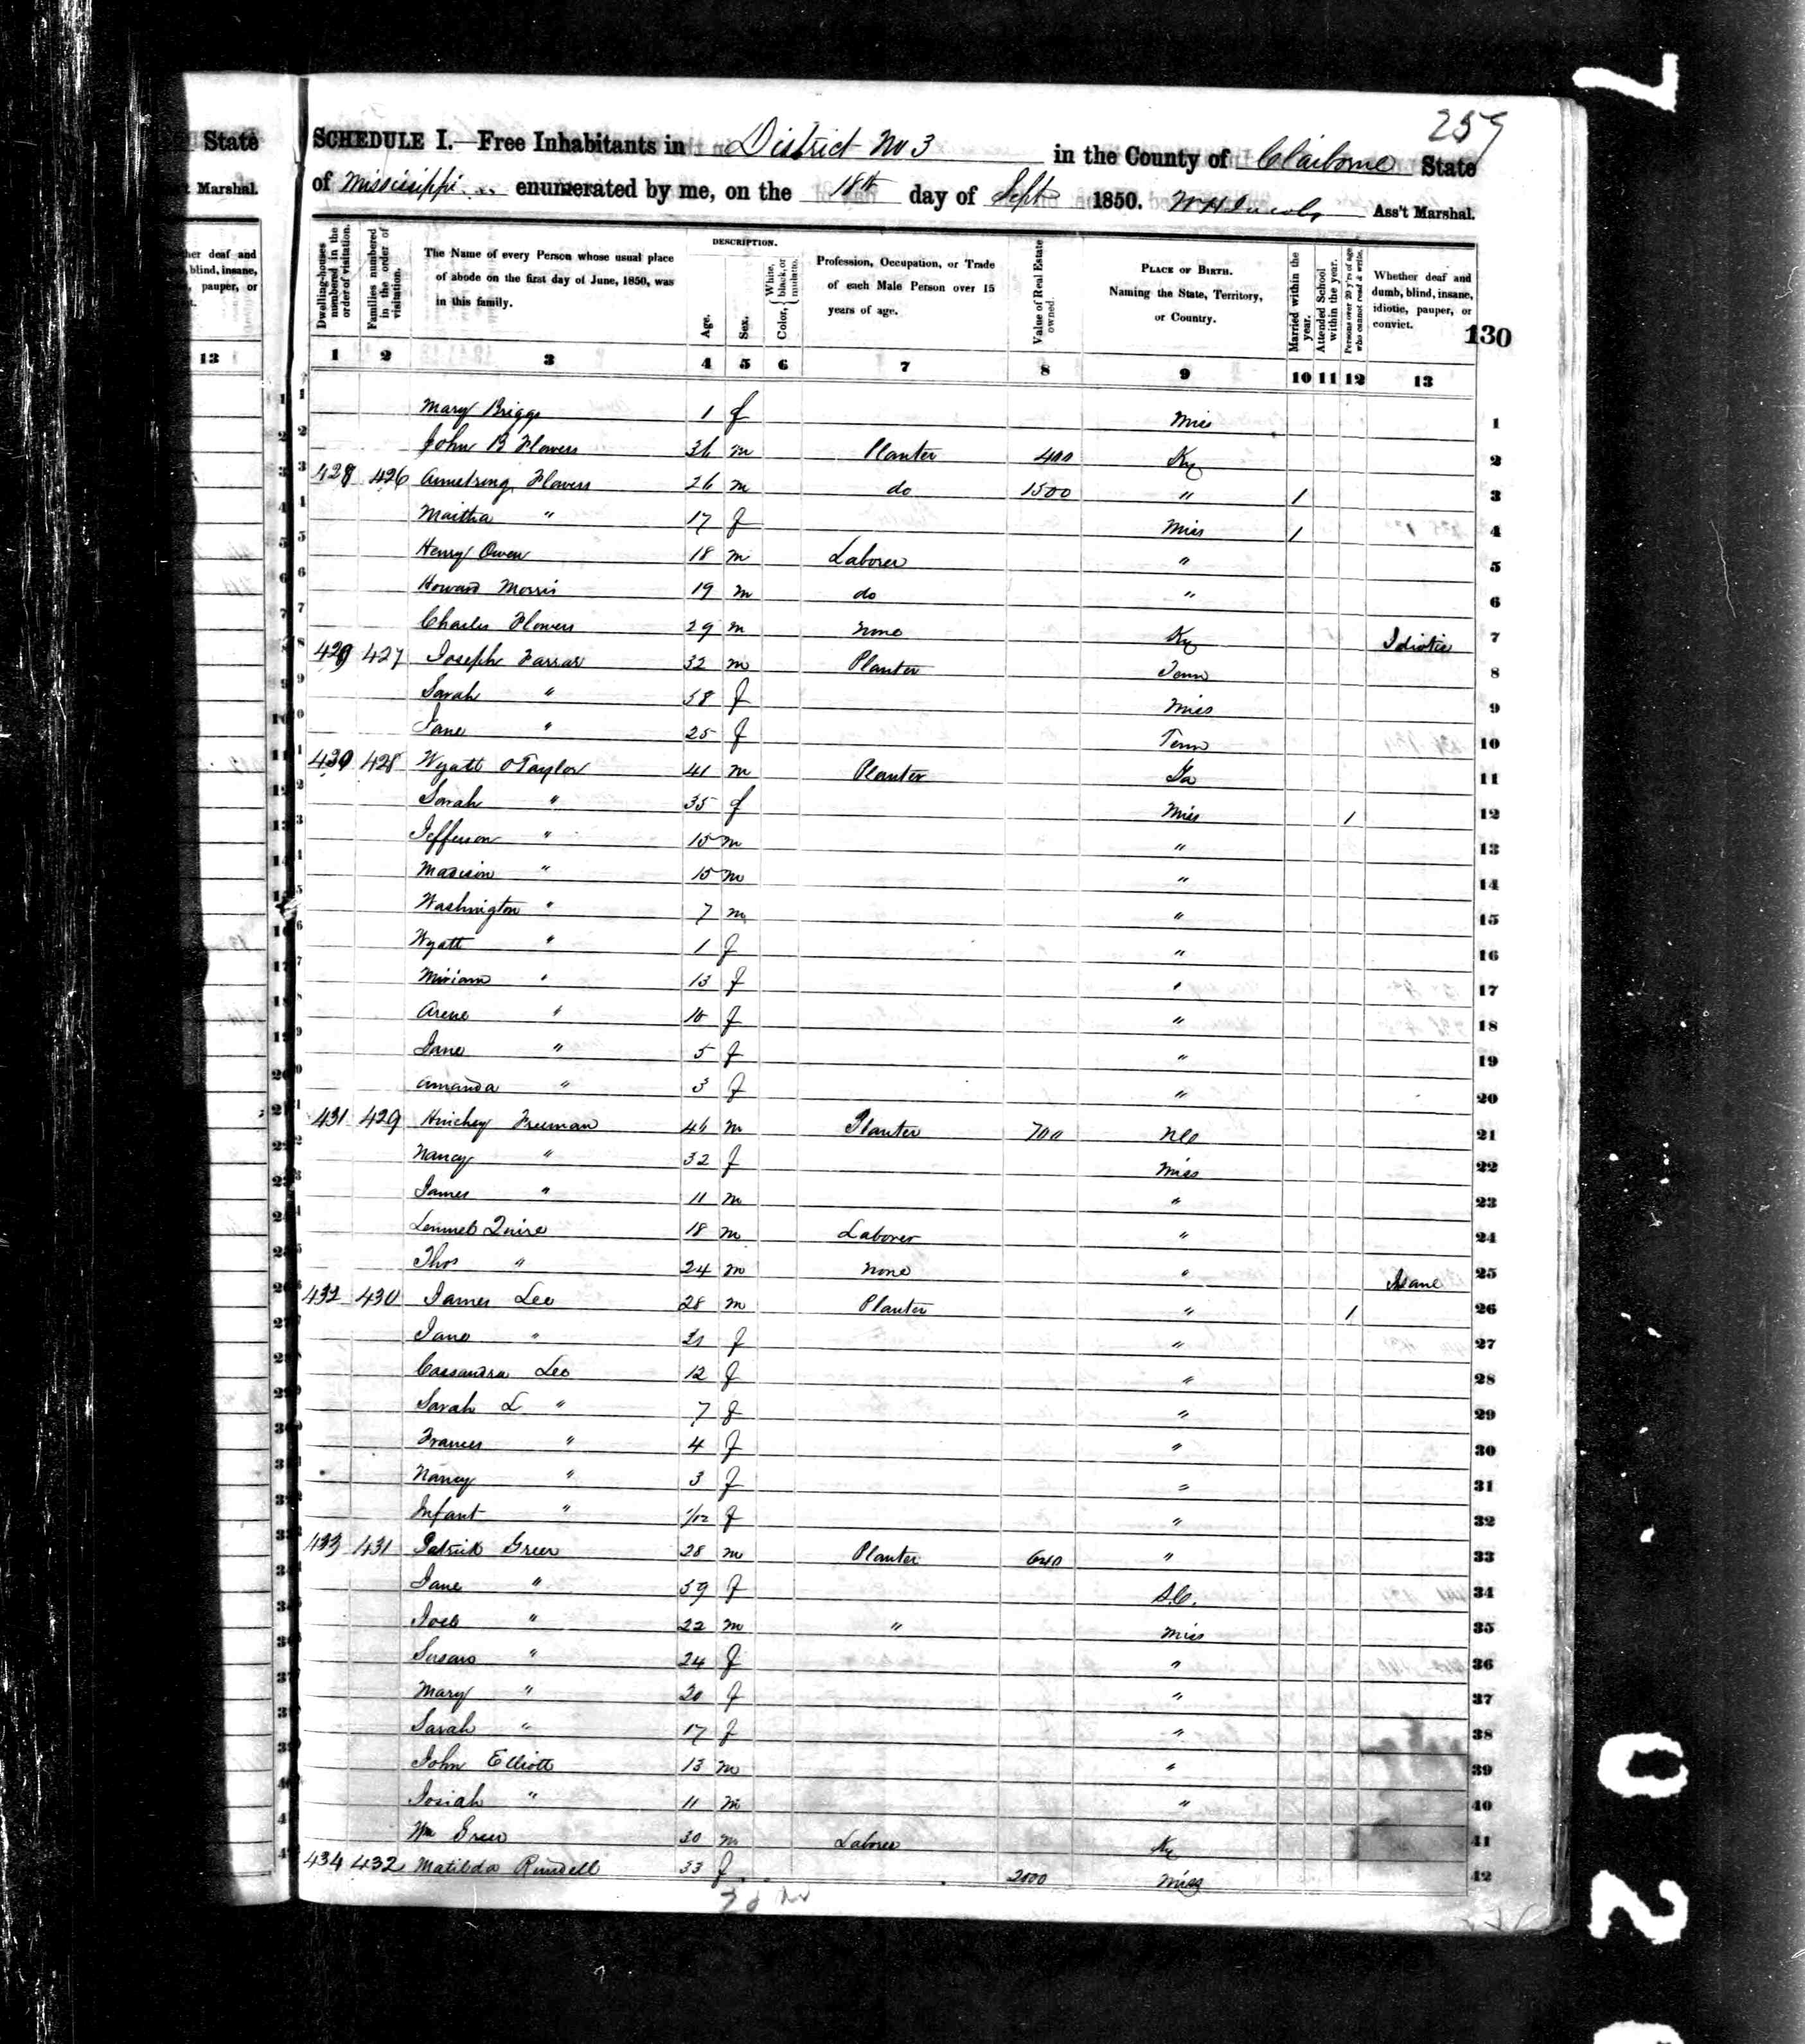 259
State
SCHEDULE I.—Free Inhabitants in District No 3 in the County of Claiborne State
t Marshal.
of Mississippi enumerated by me, on the 18th day of Sept 1850. Ass't Marshal.
her deaf and
blind, insane,
pauper, or
t.
13
Dwelling-houses numbered in the order of visitation.
Families numbered in the order of visitation.
The Name of every Person whose usual place of abode on the first day of June, 1850, was in this family.
DESCRIPTION.
Age.
Sex.
Color, { White, black, or mulatto.
Profession, Occupation, or Trade of each Male Person over 15 years of age.
Value of Real Estate owned.
PLACE OF BIRTH. Naming the State, Territory, or Country.
Married within the year.
Attended School within the year.
Persons over 20 y'rs of age who cannot read & write.
Whether deaf and dumb, blind, insane, idiotic, pauper, or convict.
130
1 2 3 4 5 6 7 8 9 10 11 12 13
1 Mary Briggs 1 f Miss 1
2 John B Flowers 36 m Planter 400 Ky 2
3 428 426 Armstrong Flowers 26 m do 1500 " 1 3
4 Martha " 17 f Miss 1 4
5 Henry Owen 18 m Laborer " 5
6 Howard Morris 19 m do " 6
7 Charles Flowers 29 m None Ky Idiotic 7
8 429 427 Joseph Farrar 32 m Planter Tenn 8
9 Sarah " 58 f Miss 9
10 Jane " 25 f Tenn 10
11 430 428 Wyatt Taylor 41 m Planter Ga 11
12 Sarah " 35 f Miss 1 12
13 Jefferson " 15 m " 13
14 Madison " 15 m " 14
15 Washington " 7 m " 15
16 Wyatt " 1 f " 16
17 Miriam " 13 f " 17
18 Arene " 10 f " 18
19 Jane " 5 f " 19
20 Amanda " 3 f " 20
21 431 429 Hinchey Freeman 46 m Planter 700 NC 21
22 Nancy " 32 f Miss 22
23 James " 11 m " 23
24 Lemuel 18 m Laborer " 24
25 Thos " 24 m None " Isane 25
26 432 430 James Lee 28 m Planter " 1 26
27 Jane " 31 f " 27
28 Cassandra Lee 12 f " 28
29 Sarah L " 7 f " 29
30 Frances " 4 f " 30
31 Nancy " 3 f " 31
32 Infant " 1/12 f " 32
33 433 431 Patrick Greer 28 m Planter 640 " 33
34 Jane " 59 f S.C. 34
35 Joel " 22 m " Miss 35
36 Susan " 24 f " 36
37 Mary " 20 f " 37
38 Sarah " 17 f " 38
39 John Elliott 13 m " 39
40 Josiah " 11 m " 40
41 Wm Greer 30 m Laborer Ky 41
42 434 432 Matilda Rundell 33 f 2000 Miss 42
7
0
2